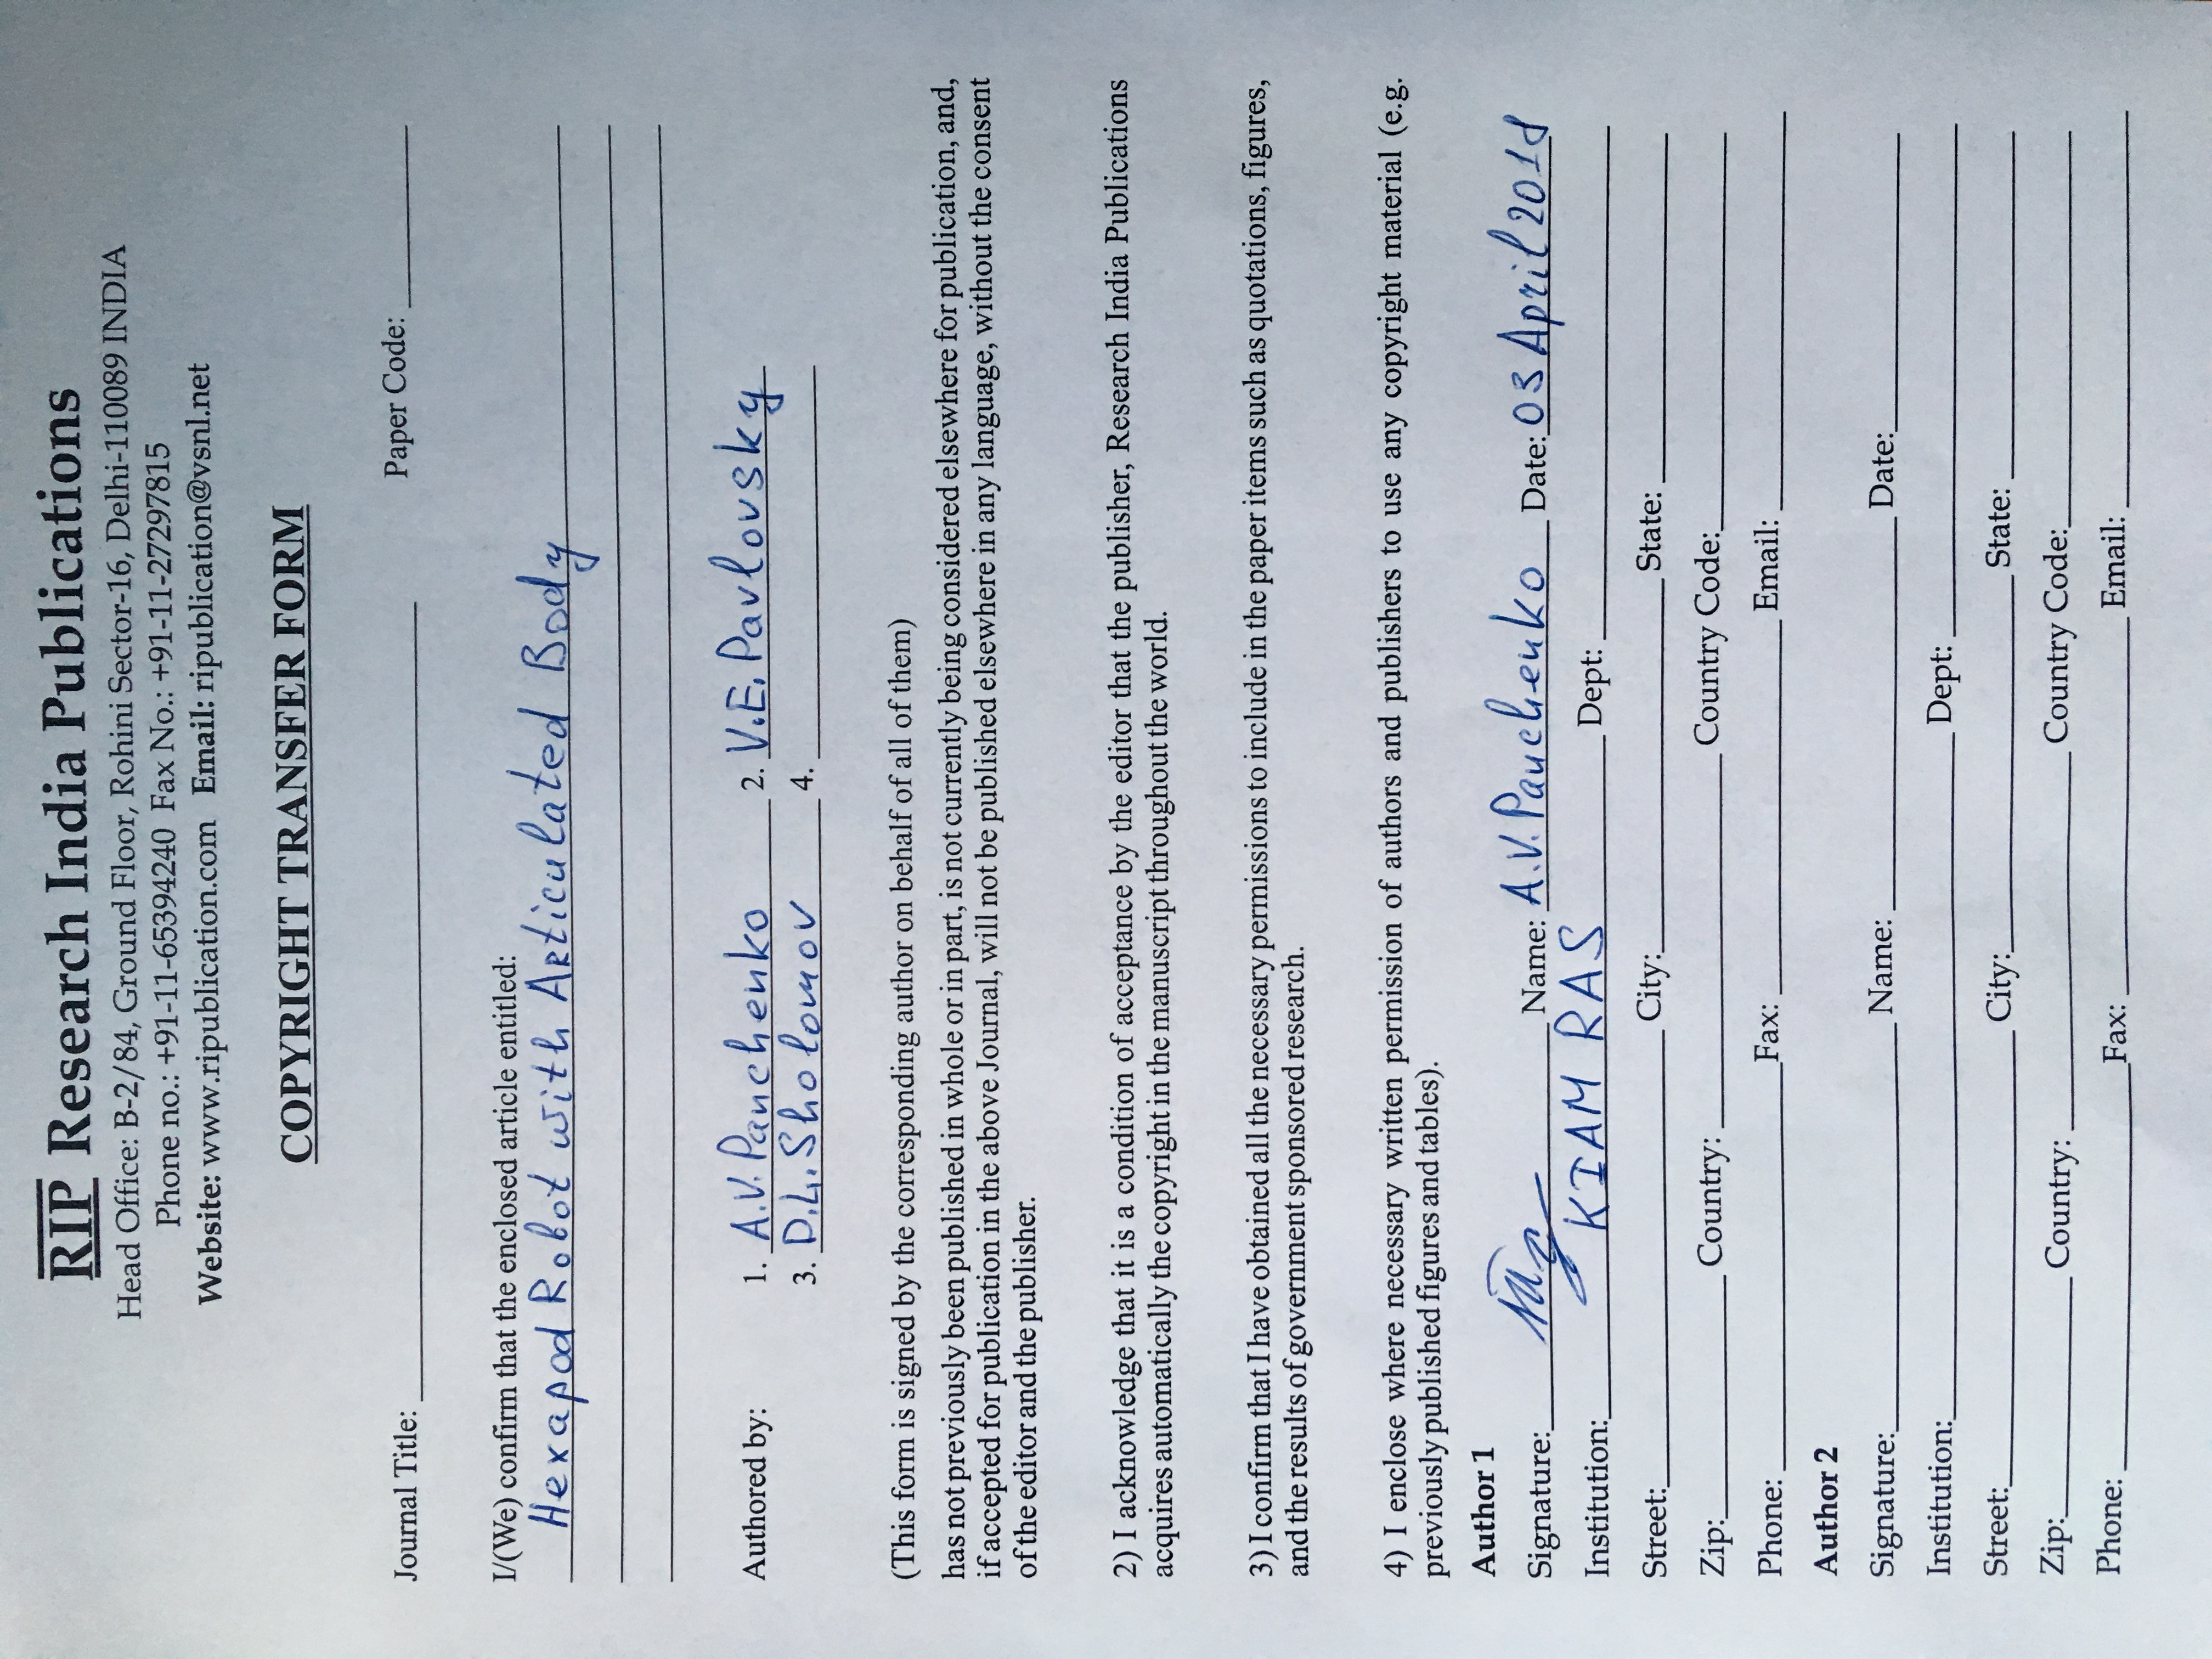 RIP Research India Publications
Head Office: B-2/84, Ground Floor, Rohini Sector-16, Delhi-110089 INDIA
Phone no.: +91-11-65394240 Fax No.: +91-11-27297815
Website: www.ripublication.com Email: ripublication@vsnl.net
COPYRIGHT TRANSFER FORM
Journal Title: Paper Code:
I/(We) confirm that the enclosed article entitled:
Hexapod Robot with Articulated Body
Authored by: 1. A.V. Panchenko 2. V.E. Pavlovsky
3. D.L. Sholomov 4.
(This form is signed by the corresponding author on behalf of all of them)
has not previously been published in whole or in part, is not currently being considered elsewhere for publication, and,
if accepted for publication in the above Journal, will not be published elsewhere in any language, without the consent
of the editor and the publisher.
2) I acknowledge that it is a condition of acceptance by the editor that the publisher, Research India Publications
acquires automatically the copyright in the manuscript throughout the world.
3) I confirm that I have obtained all the necessary permissions to include in the paper items such as quotations, figures,
and the results of government sponsored research.
4) I enclose where necessary written permission of authors and publishers to use any copyright material (e.g.
previously published figures and tables).
Author 1
Signature: Name: A.V. Panchenko Date: 03 April 2018
Institution: KIAM RAS Dept:
Street: City: State:
Zip: Country: Country Code:
Phone: Fax: Email:
Author 2
Signature: Name: Date:
Institution: Dept:
Street: City: State:
Zip: Country: Country Code:
Phone: Fax: Email: